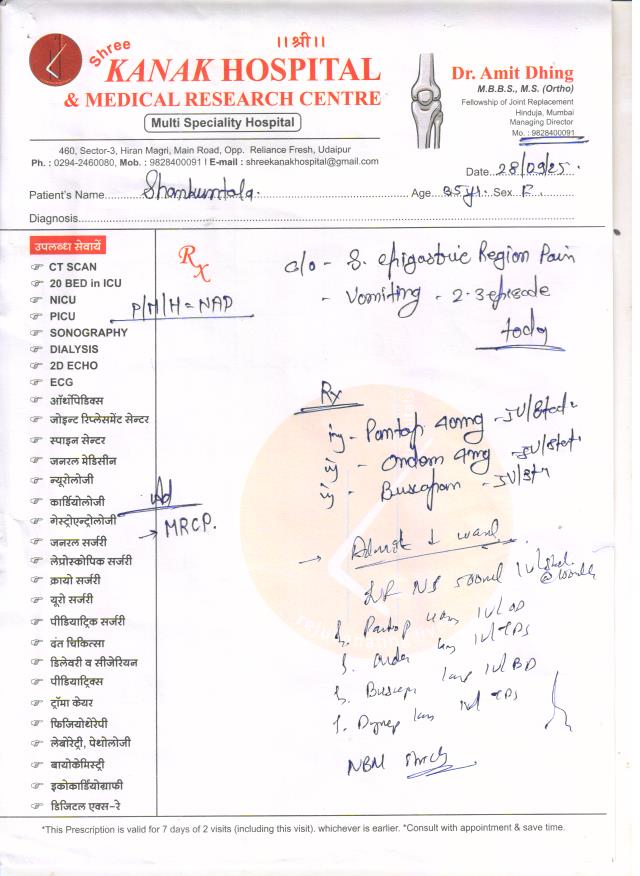 ॥श्री॥
Shree
KANAK HOSPITAL
& MEDICAL RESEARCH CENTRE
Multi Speciality Hospital
460, Sector-3, Hiran Magri, Main Road, Opp. Reliance Fresh, Udaipur
Ph. : 0294-2460080, Mob. : 9828400091 | E-mail : shreekanakhospital@gmail.com
Dr. Amit Dhing
M.B.B.S., M.S. (Ortho)
Fellowship of Joint Replacement
Hinduja, Mumbai
Managing Director
Mo. : 9828400091
Date 28/09/25
Patient's Name Shankuntala Age 35 yr. Sex F.
Diagnosis
उपलब्ध सेवायें
CT SCAN
20 BED in ICU
NICU
PICU
SONOGRAPHY
DIALYSIS
2D ECHO
ECG
ऑर्थोपेडिक्स
जोइन्ट रिप्लेसमेंट सेन्टर
स्पाइन सेन्टर
जनरल मेडिसीन
न्यूरोलोजी
कार्डियोलोजी
गेस्ट्रोएन्ट्रोलोजी
जनरल सर्जरी
लेप्रोस्कोपिक सर्जरी
क्रायो सर्जरी
यूरो सर्जरी
पीडियाट्रिक सर्जरी
दंत चिकित्सा
डिलेवरी व सीजेरियन
पीडियाट्रिक्स
ट्रॉमा केयर
फिजियोथेरेपी
लेबोरेट्री, पेथोलोजी
बायोकेमिस्ट्री
इकोकार्डियोग्राफी
डिजिटल एक्स-रे
Rx
P/H/H = NAD
Ad
→ MRCP.
c/o - S. epigastric Region Pain
- Vomiting - 2-3 episode
today
Rx
inj - Pantop 40mg - IV/Stat
inj - Ondem 4mg - IV/Stat
inj - Buscopam - IV/St
→ Admit ward
NS 500ml IV
Pantop IV OD
IV TDS
IV BD
IV TDS
NBM
*This Prescription is valid for 7 days of 2 visits (including this visit). whichever is earlier. *Consult with appointment & save time.